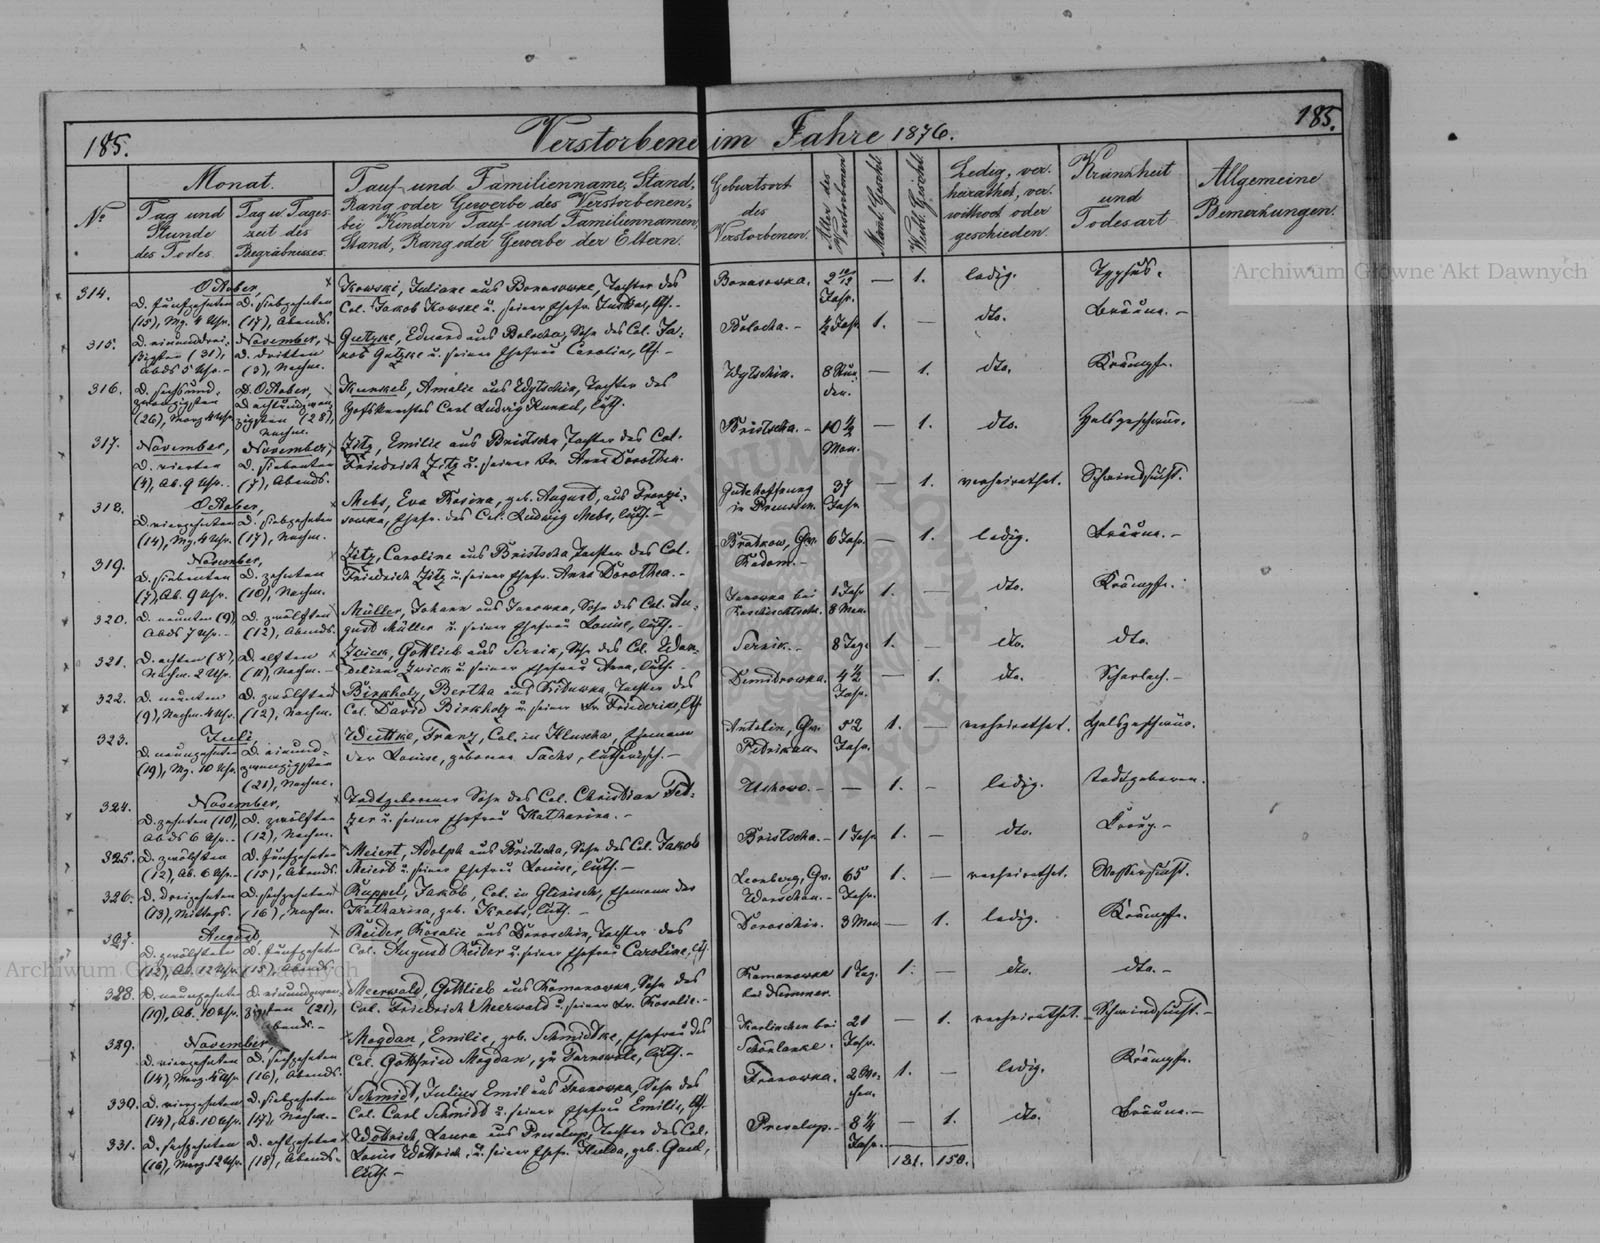 185.
Verstorbene im Jahre 1876.
185.
No
Monat.
Tag und Stunde des Todes.
Tag u. Tageszeit des Begräbnisses.
Tauf- und Familienname, Stand,
Rang oder Gewerbe des Verstorbenen,
bei Kindern Tauf- und Familiennamen,
Stand, Rang oder Gewerbe der Eltern.
Geburtsort
des
Verstorbenen.
Alter des Verstorbenen
Männl. Geschl.
Weibl. Geschl.
Ledig, ver-
heirathet, ver-
wittwet oder
geschieden.
Krankheit
und
Todesart.
Allgemeine
Bemerkungen.
Archiwum Główne Akt Dawnych
314.
October,
D. fünfzehnten D. siebzehnten
(15), Mg. 4 Uhr. (17), Abends.
Kowski, Juliane aus Borasowka, Tochter des
Col. Jakob Kowske u. seiner Ehefr.
Borasowka. 2 10/12 Jahr. — 1. ledig. Typhus.
315.
D. einunddrei- November,
ßigsten (31), D. dritten
Abds 5 Uhr.- (3), Nachm.
Gutzke, Eduard aus Bolocha, Sohn des Col. Ja-
kob Gutzke u. seiner Ehefrau Caroline, lth.-
Bolocha.- 1/2 Jahr. 1. — dto. Bräune.-
316.
D. sechsund- D. October,
zwanzigsten D. achtundzwan-
(26), Morg. 4 Uhr. zigsten (28),
Nachm.
Kunkel, Amalie aus Wytschin, Tochter des
Hofsknechtes Carl Ludwig Kunkel, luth.
Wytschin. 8 Stun-
den. — 1. dto. Krämpfe.
317.
November, November,
D. vierten D. siebenten
(4), Ab. 9 Uhr. (7), Abends.
Zitz, Emilie aus Bristscha, Tochter des Col.
Friedrich Zitz u. seiner Fr. Anna Dorothea.
Bristscha.- 10 1/2
Mon. — 1. dto. Halsgeschwür.
318.
October,
D. vierzehnten D. siebzehnten
(14), Mg. 4 Uhr. (17), Nachm.
Mebs, Eva Rosina, geb. August, aus Franzi-
sowka, Ehefr. des Col. Ludwig Mebs, luth.-
Gutehoffnung 37
in Preussen. Jahr. — 1. verheirathet. Schwindsucht.
319.
November,
D. siebenten D. zehnten
(7), Ab. 9 Uhr. (10), Nachm.
Zitz, Caroline aus Bristscha, Tochter des Col.
Friedrich Zitz u. seiner Ehefr. Anna Dorothea.-
Bratkow, Gv. 6 Jahr.
Radom.- — 1. ledig. Bräune.-
320.
D. neunten (9), D. zwölften
Abds 7 Uhr.- (12), Abends.
Müller, Johann aus Janowka, Sohn des Col. Au-
gust Müller u. seiner Ehefrau Louise, luth.-
Janowka bei 1 Jahr
8 Mon. 1. — dto. Krämpfe.
321.
D. achten (8), D. elften
Nachm. 2 Uhr. (11), Nachm.-
Zwick, Gottlieb aus Sernik, Sohn des Col. Wan-
delin Zwick u. seiner Ehefrau Anna, luth.-
Sernik.- 8 Tage 1. — dto. dto.
322.
D. neunten D. zwölften
(9), Nachm. 4 Uhr. (12), Nachm.
Birkholz, Bertha aus Tochter des
Col. David Birkholz u. seiner Fr. Friederike, lth.
Demidrowka. 4 1/2
Jahr. — 1. dto. Scharlach.-
323.
Juli,
D. neunzehnten D. einund-
(19), Mg. 10 Uhr. zwanzigsten
(21), Nachm.
Wuttke, Franz, Col. in Kluscha, Ehemann
der Louise, geborene Sachs, lutherisch.-
Antolin, Gv. 52
Petrikau. Jahr. 1. — verheirathet. Halsgeschwür.
324.
November,
D. zehnten (10), D. zwölften
Abds 6 Uhr.- (12), Nachm.
Todtgeborener Sohn des Col. Christian Fet-
zer u. seiner Ehefrau Katharina.-
Ushowo.- — 1. — ledig. todtgeboren.
325.
D. zwölften D. fünfzehnten
(12), Ab. 6 Uhr.- (15), Abends.
Meiert, Adolph aus Bristscha, Sohn des Col. Jakob
Meiert u. seiner Ehefrau Louise, luth.-
Bristscha.- 1 Jahr 1. — dto.
326.
D. dreizehnten D. sechzehnten
(13), Mittags. (16), Nachm.
Ruppel, Jakob, Col. in Glinisch, Ehemann der
Katharina, geb. Krebs, luth.-
Leonberg, Gv. 65
Warschau.- Jahr. 1. — verheirathet. Wassersucht.
327.
August,
D. zwölften D. fünfzehnten
(12), Ab. 12 Uhr. (15), Abends.
Reider, Rosalie aus Doroschin, Tochter des
Col. August Reider u. seiner Ehefrau Caroline, lth.
Doroschin. 3 Mon — 1. ledig. Krämpfe.
Archiwum Główne Akt Dawnych
328.
D. neunzehnten D. einundzwan-
(19), Ab. 10 Uhr. zigsten (21),
Abends.-
Meerwald, Gottlieb aus Romanowka, Sohn des
Col. Friedrich Meerwald u. seiner Fr. Rosalie.-
Romanowka 1 Tag. 1. — dto. dto.-
329.
November,
D. vierzehnten D. sechzehnten
(14), Morg. 4 Uhr. (16), Abends.
Magdan, Emilie, geb. Schmidtke, Ehefrau des
Col. Gottfried Magdan, zu Tarnowole, luth.-
bei 21
Schönlanke. Jahr. — 1. verheirathet.- Schwindsucht.-
330.
D. vierzehnten D. siebzehnten
(14), Ab. 10 Uhr. (17), Nachm.-
Schmidt, Julius Emil aus Franowka, Sohn des
Col. Carl Schmidt u. seiner Ehefrau Emilie, lth.
Franowka. 2 Wo-
chen. 1. — ledig. Krämpfe.
331.
D. sechzehnten D. achtzehnten
(16), Morg. 12 Uhr. (18), Abends.-
Wottrich, Laura aus Presalup, Tochter des Col.
Louis Wottrich, u. seiner Ehefr. Hulda, geb.
luth.-
Presalup.- 8 1/4
Jahr. — 1. dto. Bräune.-
181. 150.